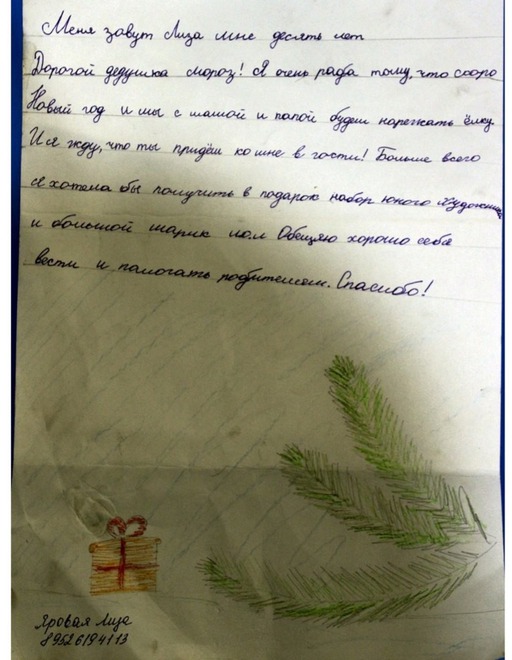 Меня зовут Лиза мне десять лет
Дорогой дедушка мороз! Я очень рада тому, что скоро
Новый год и мы с мамой и папой будем наряжать ёлку
И я жду, что ты придёш ко мне в гости! Больше всего
я хотела бы получить в подарок набор юного художника
и большой шарик лол Обещяю хорошо себя
вести и памогать родителям. Спасибо!
Яровая Лиза
89526194113